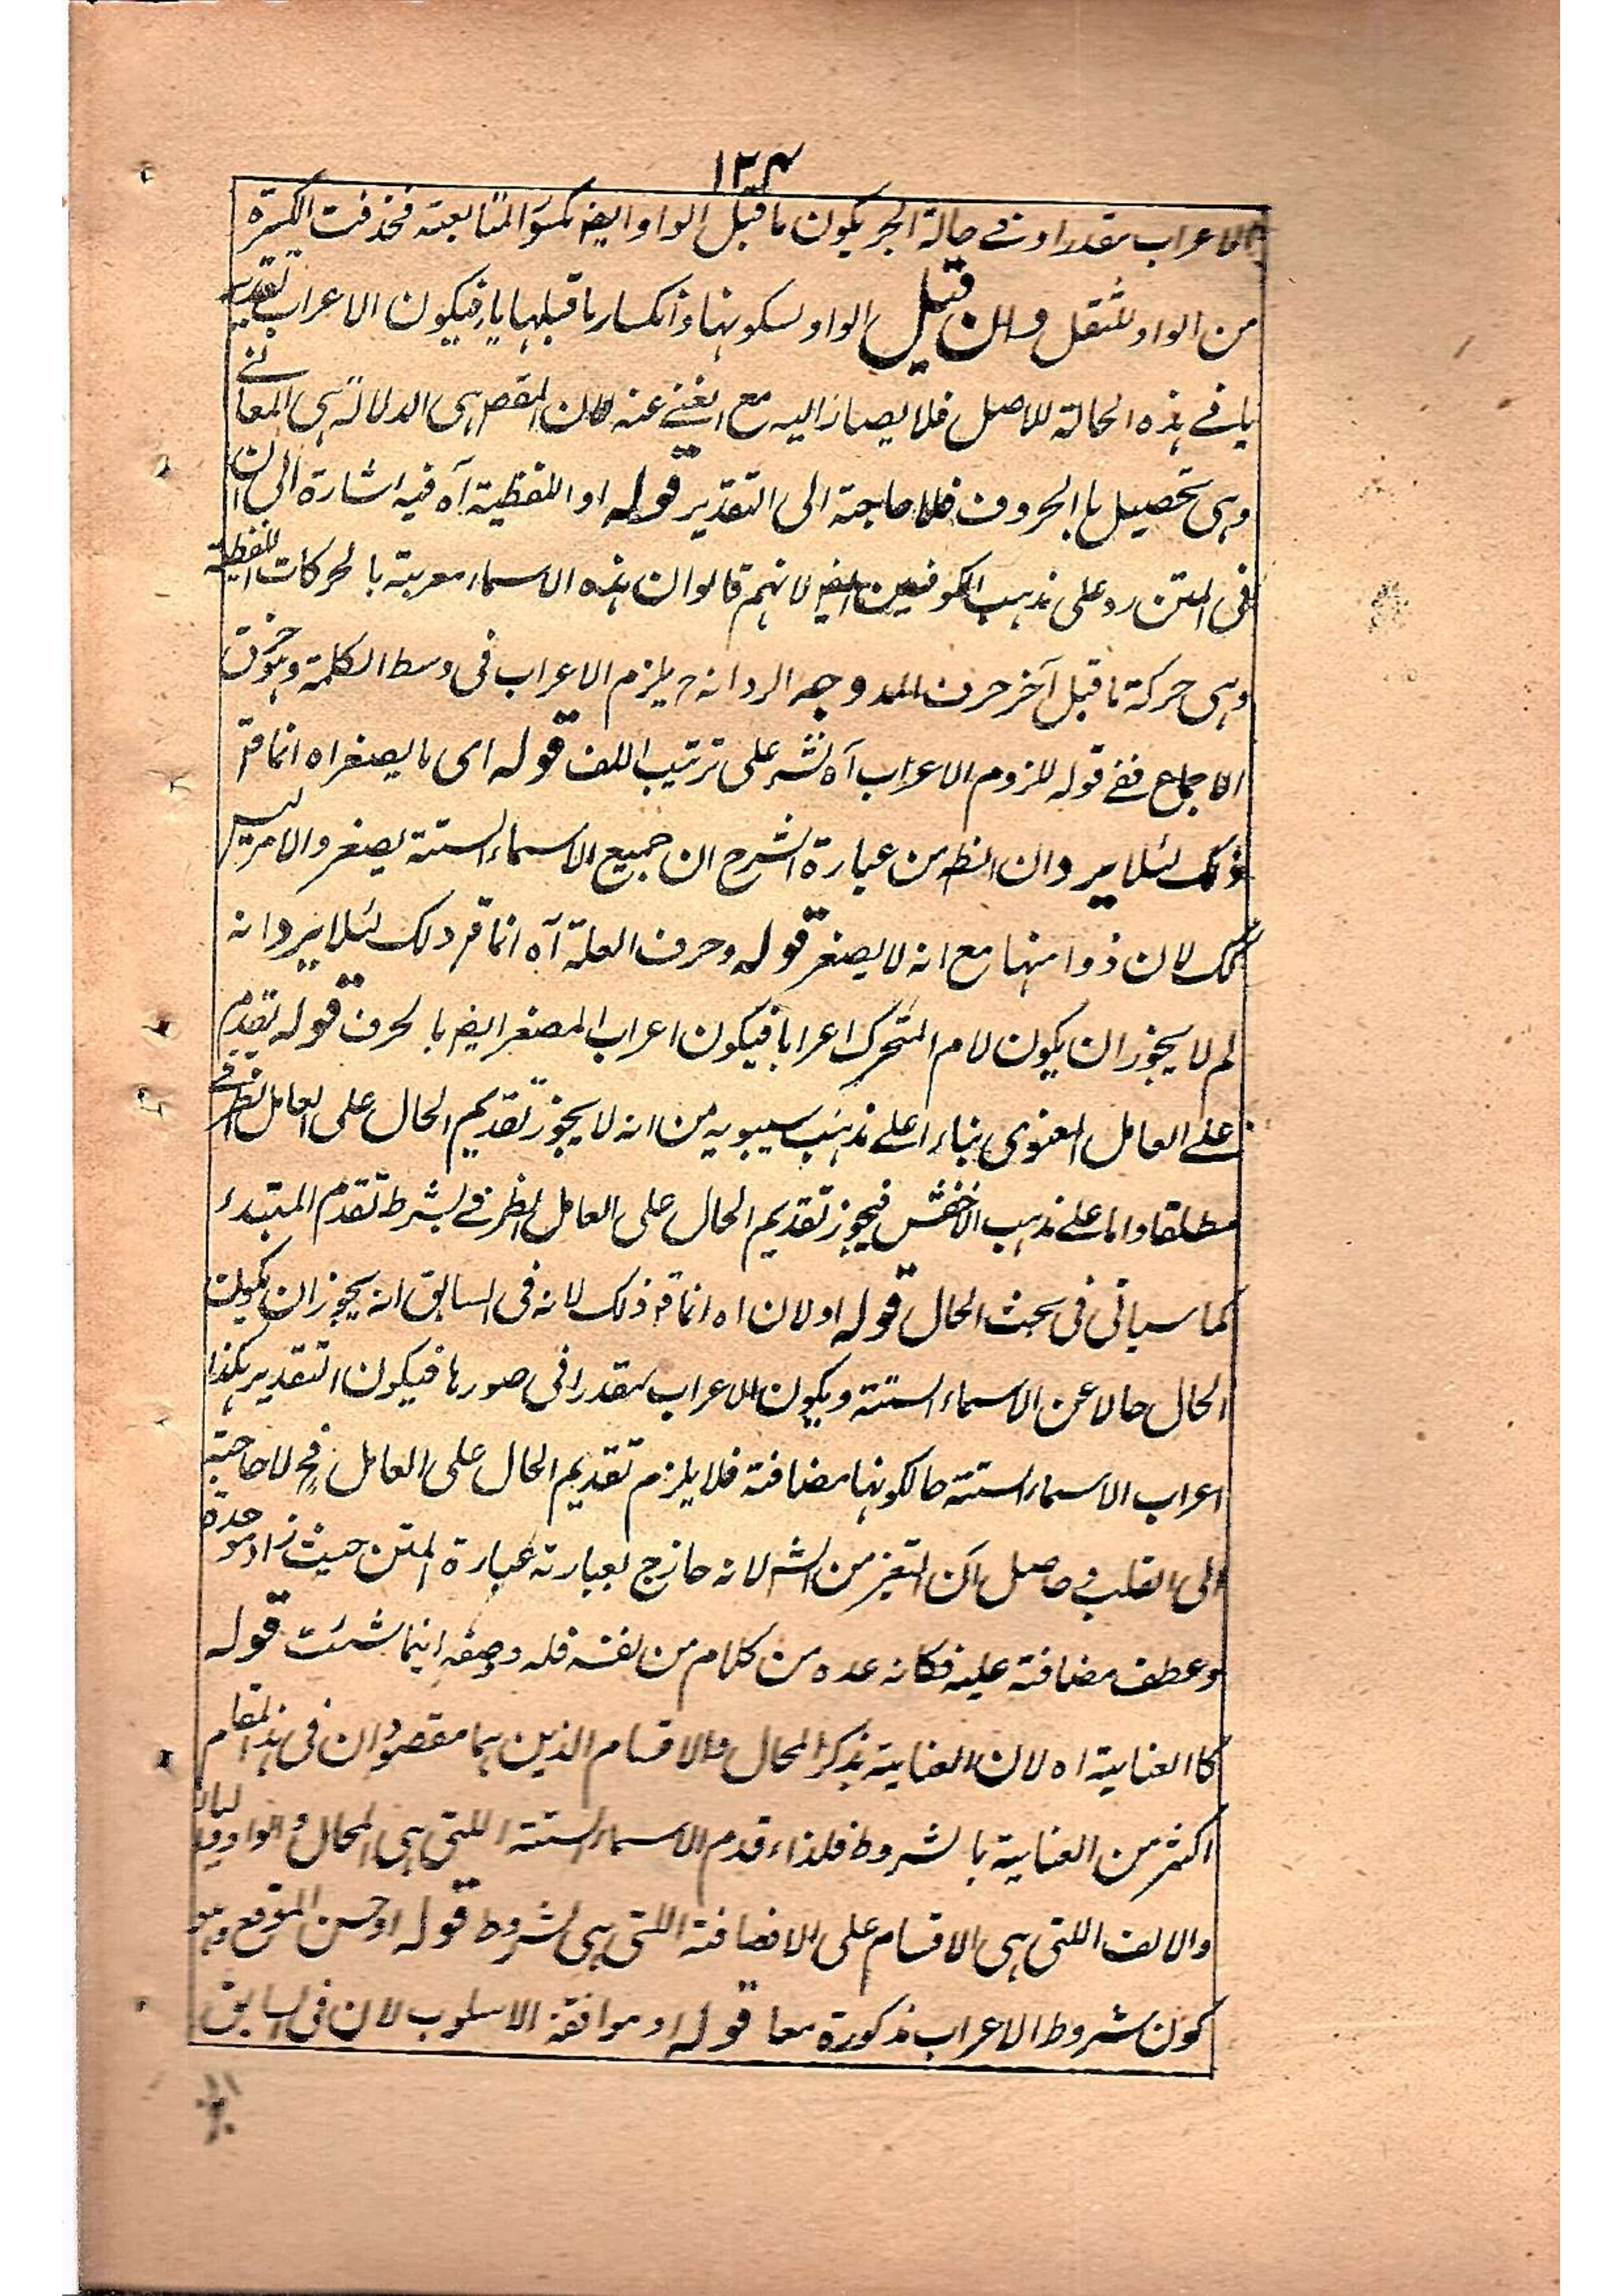 ١٣٤
الاعراب مقدرا وفي حالة الجر يكون ما قبل الواو ايض مكسورا لمتابعته فحذفت الكسرة
من الواو للثقل والن قيل الواو لسكونها وانكسار ما قبلها ياء فيكون الاعراب تقديريا
يا في هذه الحالة للاصل فلا يصار اليه مع الغنى عنه لان المقص هي الدلالة هي المعاني
وهي تحصيل با الحروف فلا حاجة الى التقدير قوله او اللفظية آه فيه اشارة الى ان
في المتن رد على مذهب الكوفيين ايض لانهم قالوا ان هذه الاسماء معربة با لحركات اللفظية
وهي حركة ما قبل آخر حرف المد وجه الرد انه ح يلزم الاعراب في وسط الكلمة وهو خرق
الاجماع ففي قوله للزوم الاعراب آه نشر على ترتيب اللف قوله اى ما يصغر اه انما قر
ذلك لئلا يرد ان الظ من عبارة الشرح ان جميع الاسماء الستة يصغر والامر ليس
كك لان ذو منها مع انه لا يصغر قوله وحرف العلة آه انما قر ذلك لئلا يرد انه
لم لا يجوز ان يكون لام المتحرك اعرابا فيكون اعراب المصغر ايض با لحرف قوله تقدم
على العامل المعنوى بناء اعلى مذهب سيبويه من انه لا يجوز تقديم الحال على العامل الظرفي
مطلقا واما على مذهب الاخفش فيجوز تقديم الحال على العامل الظرفي بشرط تقدم المبتدء
كما سياتى فى بحث الحال قوله او لان اه انما قر ذلك لانه فى السابق انه يجوز ان يكون
الحال حالا عن الاسماء الستة ويكون الاعراب مقدرا في صورها فيكون التقدير هكذا
اعراب الاسماء الستة حالكونها مضافة فلا يلزم تقديم الحال على العامل فح لا حاجة
الى القلب وحاصل ان التغير من الش لانه حازج بعبارته عبارة المتن حيث زاد موحدة
وعطف مضافة عليه فكانه عده من كلام من نفسه فله وصفه اينما شئت قوله
كا العناية اه لان العناية بذكر المحال والاقسام الذين هما مقصودان فى هذ المقام
اكثر من العناية با لشروط فلذا قدم الاسماء الستة اللتى هى المحال والواو والياء
والالف اللتى هى الاقسام على الاضافة اللتى هى لشروط قوله اوحسن الموقع وهو
كون شروط الاعراب مذكورة معا قوله او موافقة الاسلوب لان فى السابق